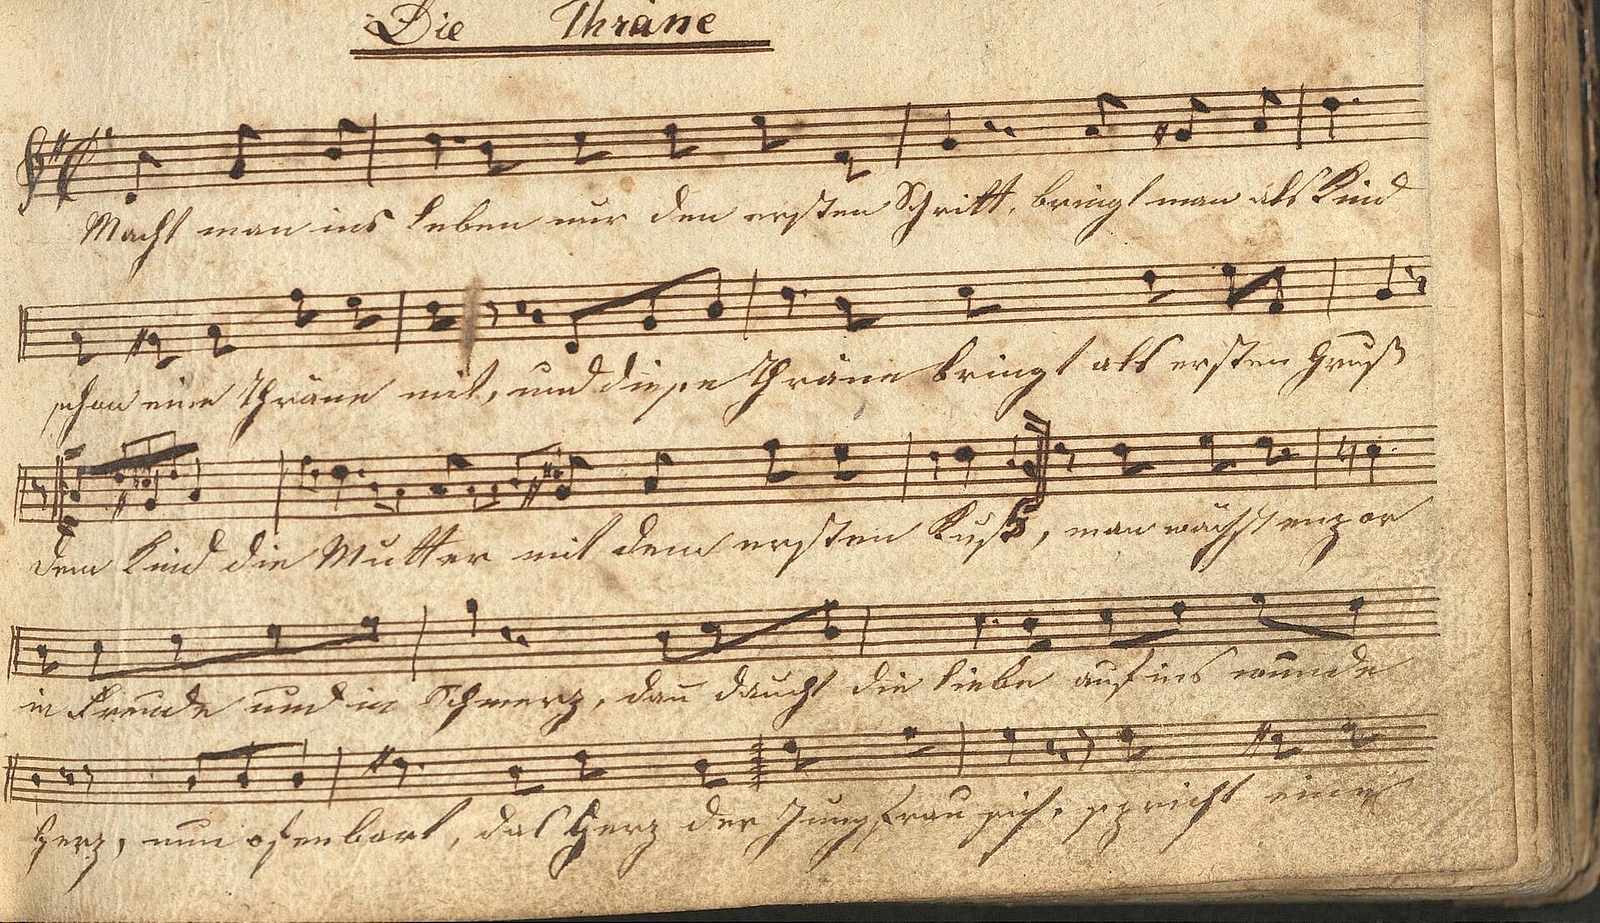 Die Thräne
Macht man ins Leben nur den ersten Schritt, bringt man als Kind
schon eine Thräne mit, und diese Thräne bringt als ersten Gruß
dem Kind die Mutter mit dem ersten Kuß, man wächst empor
in Freude und in Schmerz, dan̄ daucht die Liebe auf ins wunde
Herz, nun ofenbart, das Herz der Jungfrau sich, spricht eine